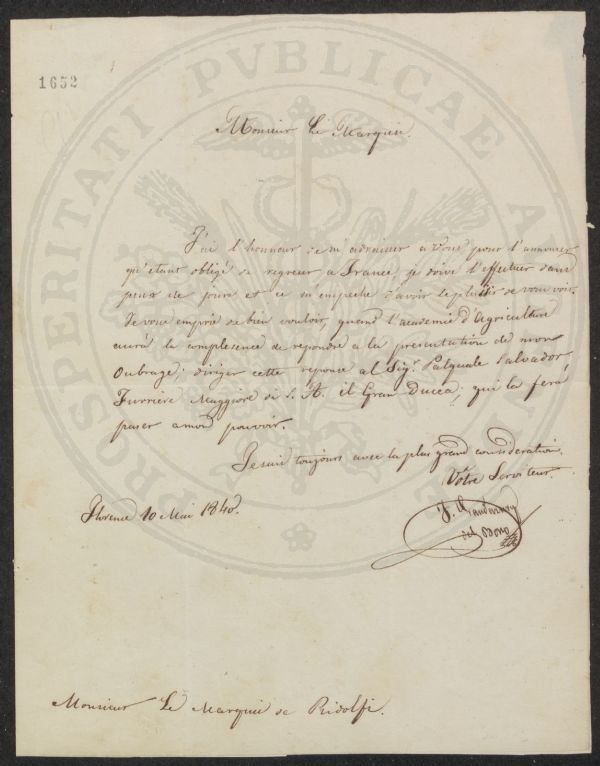 1652
Monsieur Le Marquis.
J'ai l'honneur de m'adraisser a Vous pour l'annuncer
qu'étant obligé de regreser a France, je doive l'effectuer dans
peux de jours et ce m'empeche d'avoir le plaisir de vous voir.
Je vous emprie de bien vouloir, quand l'academie d'Agriculture
aura la complesence de repondre a la presentation de mon
Oubrage; diriger cette reponse al Sigr. Pasquale Salvador
Furriere Maggiore di S. A. il Gran Ducca, qui la ferá
paser a mon pouvoir.
Je suis toujours avec la plus grand consideration.
Vótre Serviteur.
Florence 10 Mai 1840.
J.
del Bono
Monsieur Le Marquis de Ridolfi.
PROSPERITATI PVBLICAE